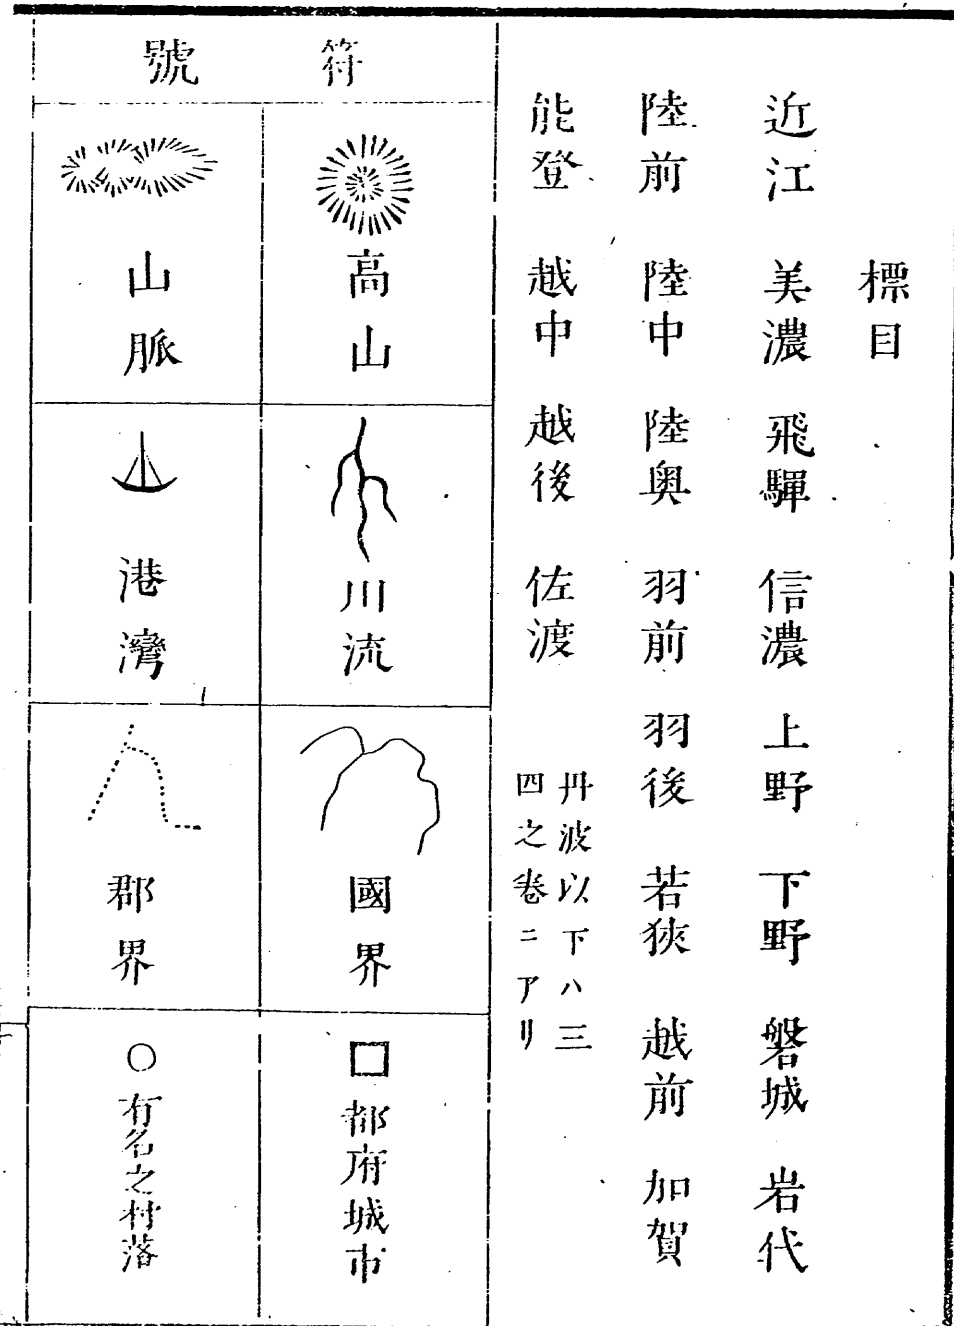 標目
近江 美濃 飛驒 信濃 上野 下野 磐城 岩代
陸前 陸中 陸奥 羽前 羽後 若狹 越前 加賀
能登 越中 越後 佐渡
丹波以下ハ三
四之卷ニアリ
符號
高山
川流
國界
都府城市
山脈
港灣
郡界
有名之村落